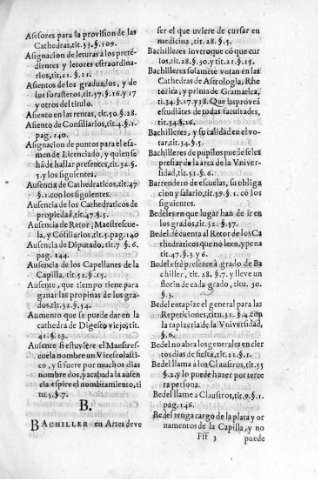 Asesores para la provision de las
Cathedras, tit. 33. §. 109.
Asignacion de leturas à los preté-
dientes y letores estraordina-
rios, tit. 21. §. 11.
Asientos de los graduados, y de
los forasteros, tit. 17. §. 16. y 17
y otros del titulo.
Asiento en las rentas, tit. 50. §. 28.
Asiento de Consiliarios, tit. 4. §. 1.
pag. 140.
Asignacion de puntos para el esa-
men de Licenciado, y quien se
ha de hallar presentes, tit. 32. §.
5. y los siguientes.
Ausencia de Cathedraticos, tit. 47
§. 1. con los siguientes.
Ausencia de los Cathedraticos de
propiedad, tit. 47. §. 5.
Ausencia de Retor, Maestrescue-
la, y Cósiliarios, tit. 5. pag. 140
Ausencia de Diputado, tit. 7 §. 6.
pag. 144.
Ausencia de los Capellanes de la
Capilla, tit. 51. §. 15.
Ausento, que tiempo tiene para
ganar las propinas de los gra-
dos, tit. 32. §. 54.
Aumento que se puede dar en la
cathedra de Digesto viejo, tit.
41. §. 23.
Ausente si estuviere el Maestres-
cuela nombre un Vicescolasti-
co, y si fuere por muchos dias
nombre dos, y acabada la ausen
cia espire el nombramiento, ti
tu. 5. §. 7.
B.
BACHILLER en Artes deve
ser el que uviere de cursar en
medicina, tit. 28. §.
Bachilleres lo vero que có que cur
sos, tit. 28. §. 30. y tit. 21. §. 15.
Bachilleres solaméte votan en las
Cathedras de Astrologia, Rhe
torica, y primo de Gramatica,
ti. 34. §. 17. y 18. Que las proveá
estudiátes de todas facultades,
tit. 34. §. 16.
Bachilleres, y su calidad en el vo-
tar, tit. 34. §. 5.
Bachilleres de pupilos puedeseles
prestar de la arca de la Vniver-
sidad, tit. 51. §. 6.
Barrendero de escuelas, su obliga
cion y salario, tit. 59. §. 1. có los
siguientes.
Bedeles en que lugar han de ir en
los grados, tit. 32. §. 57.
Bedel dé cuenta al Retor de los Ca
thedraticos que no leen, y pena
tit. 47. §. 3. y 6.
Bedel esté presente à grado de Ba
chiller, tit. 28. §. 7. y lleve un
florin de cada grado, titu. 30.
§. 3.
Bedel entapize el general para las
Repeticiones, titu. 31. §. 4. con
la tapizeria de la Vniversidad,
§. 6.
Bedel no abra los generales en cier
tos dias de fiesta, tit. 21. §. 1.
Bedel llama à los Claustros, tit. 55
§. 2. y lo puede hazer por terce
ra persona.
Bedel llame a Claustros, tit. 9. §. 1.
pag. 146.
Bedel tenga cargo de la plata y or
namentos de la Capilla, y no
Fff 3 puede